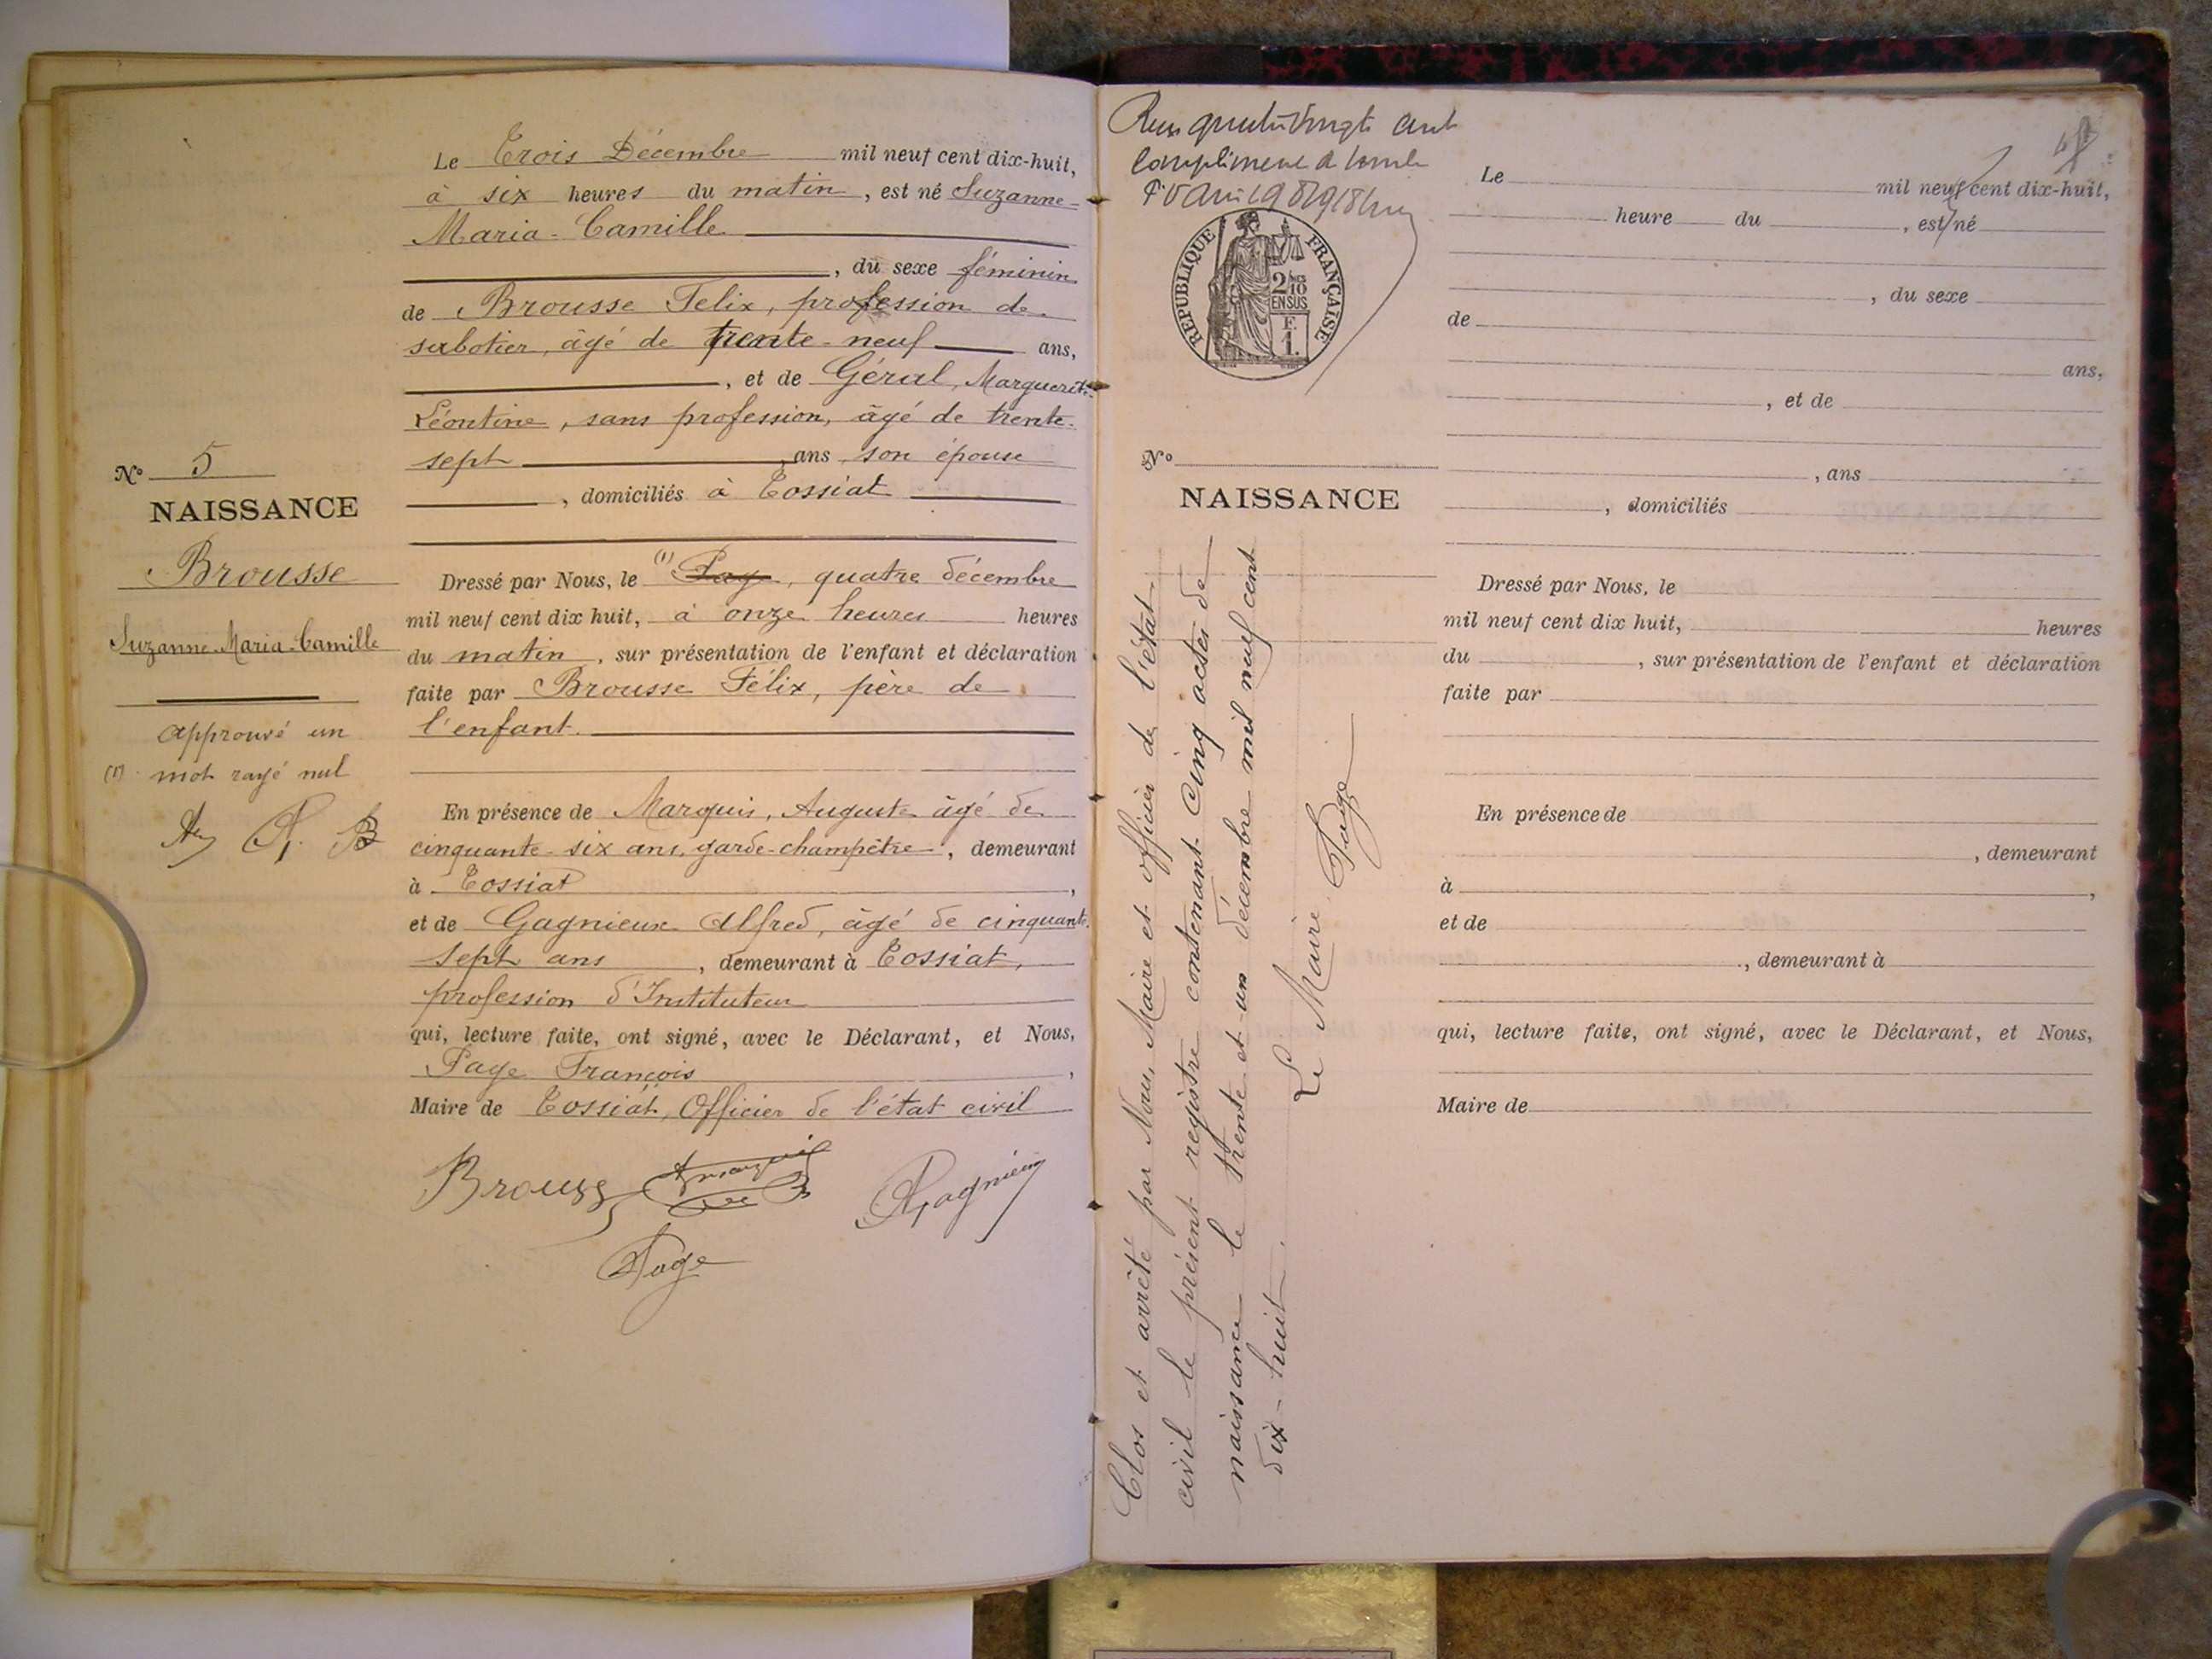 Le Trois Décembre mil neuf cent dix-huit,
à six heures du matin, est né Suzanne-
Maria-Camille
, du sexe féminin
de Brousse Felix, profession de
sabotier, âgé de trente-neuf ans,
, et de Géral, Marguerite
Léontine, sans profession, âgé de trente-
sept ans son épouse
, domiciliés à Tossiat
Dressé par Nous, le (1) Pag, quatre décembre
mil neuf cent dix huit, à onze heures heures
du matin, sur présentation de l'enfant et déclaration
faite par Brousse Félix, père de
l'enfant.
En présence de Marquis, Auguste âgé de
cinquante-six ans, garde-champêtre, demeurant
à Tossiat,
et de Gagnieux Alfred, âgé de cinquante
sept ans, demeurant à Tossiat,
profession d'Instituteur
qui, lecture faite, ont signé, avec le Déclarant, et Nous,
Page François,
Maire de Tossiat, Officier de l'état civil
Brousse Amarquis AGagnieux
Page
N° 5
NAISSANCE
Brousse
Suzanne-Maria-Camille
Approuvé un
(1) mot rayé nul
B
quatre vingts
RÉPUBLIQUE FRANÇAISE
2/10
EN SUS
F.
1.
N°
NAISSANCE
Clos et arrêté par Nous, Maire et officier de l'état
civil le présent registre contenant cinq actes de
naissance le trente et un décembre mil neuf cent
dix-huit.
Le Maire Page
Le mil neuf cent dix-huit,
heure du , est né
, du sexe
de
ans,
, et de
, ans
, domiciliés
Dressé par Nous, le
mil neuf cent dix huit, heures
du , sur présentation de l'enfant et déclaration
faite par
En présence de
, demeurant
à ,
et de
, demeurant à
qui, lecture faite, ont signé, avec le Déclarant, et Nous,
Maire de